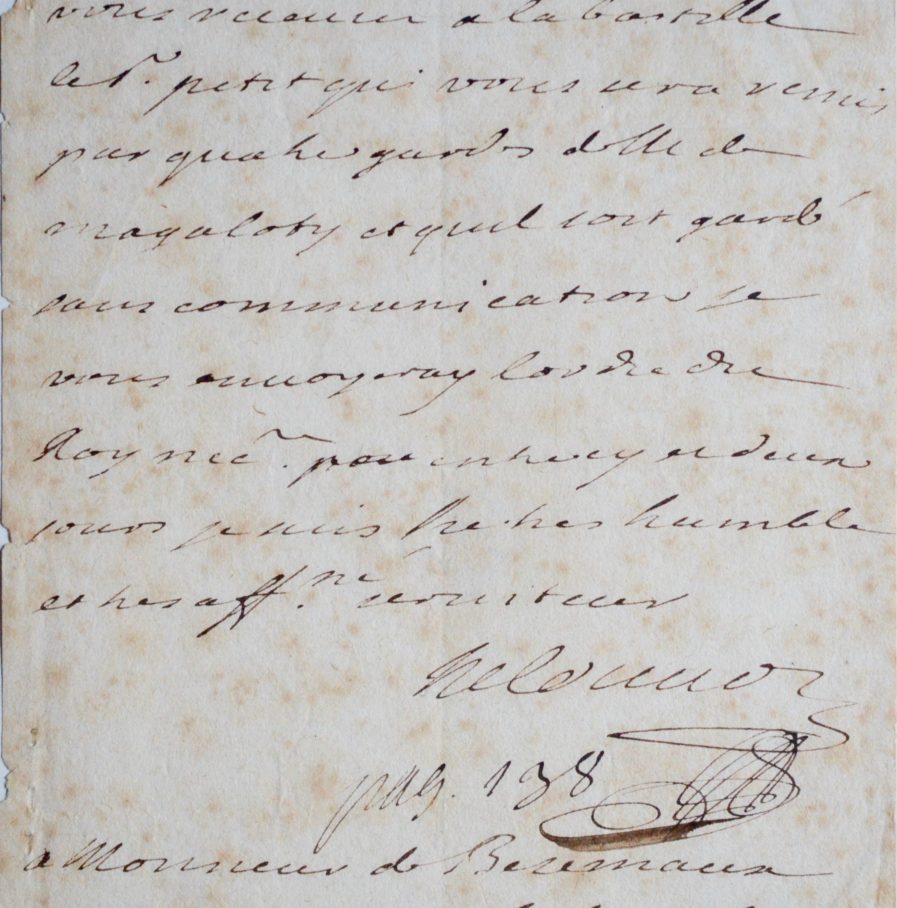 vous receviez a la bastille
le Sr. petit qui vous sera remis
par quatre gardes de M de
magaloty et quil soit gardé
sans communication je
vous enuoyeray lordre du
Roy nec.re pour entre cy et deux
jours je suis tres humble
et tres aff.né seruiteur
pag. 138
a Monsieur de Besemaux